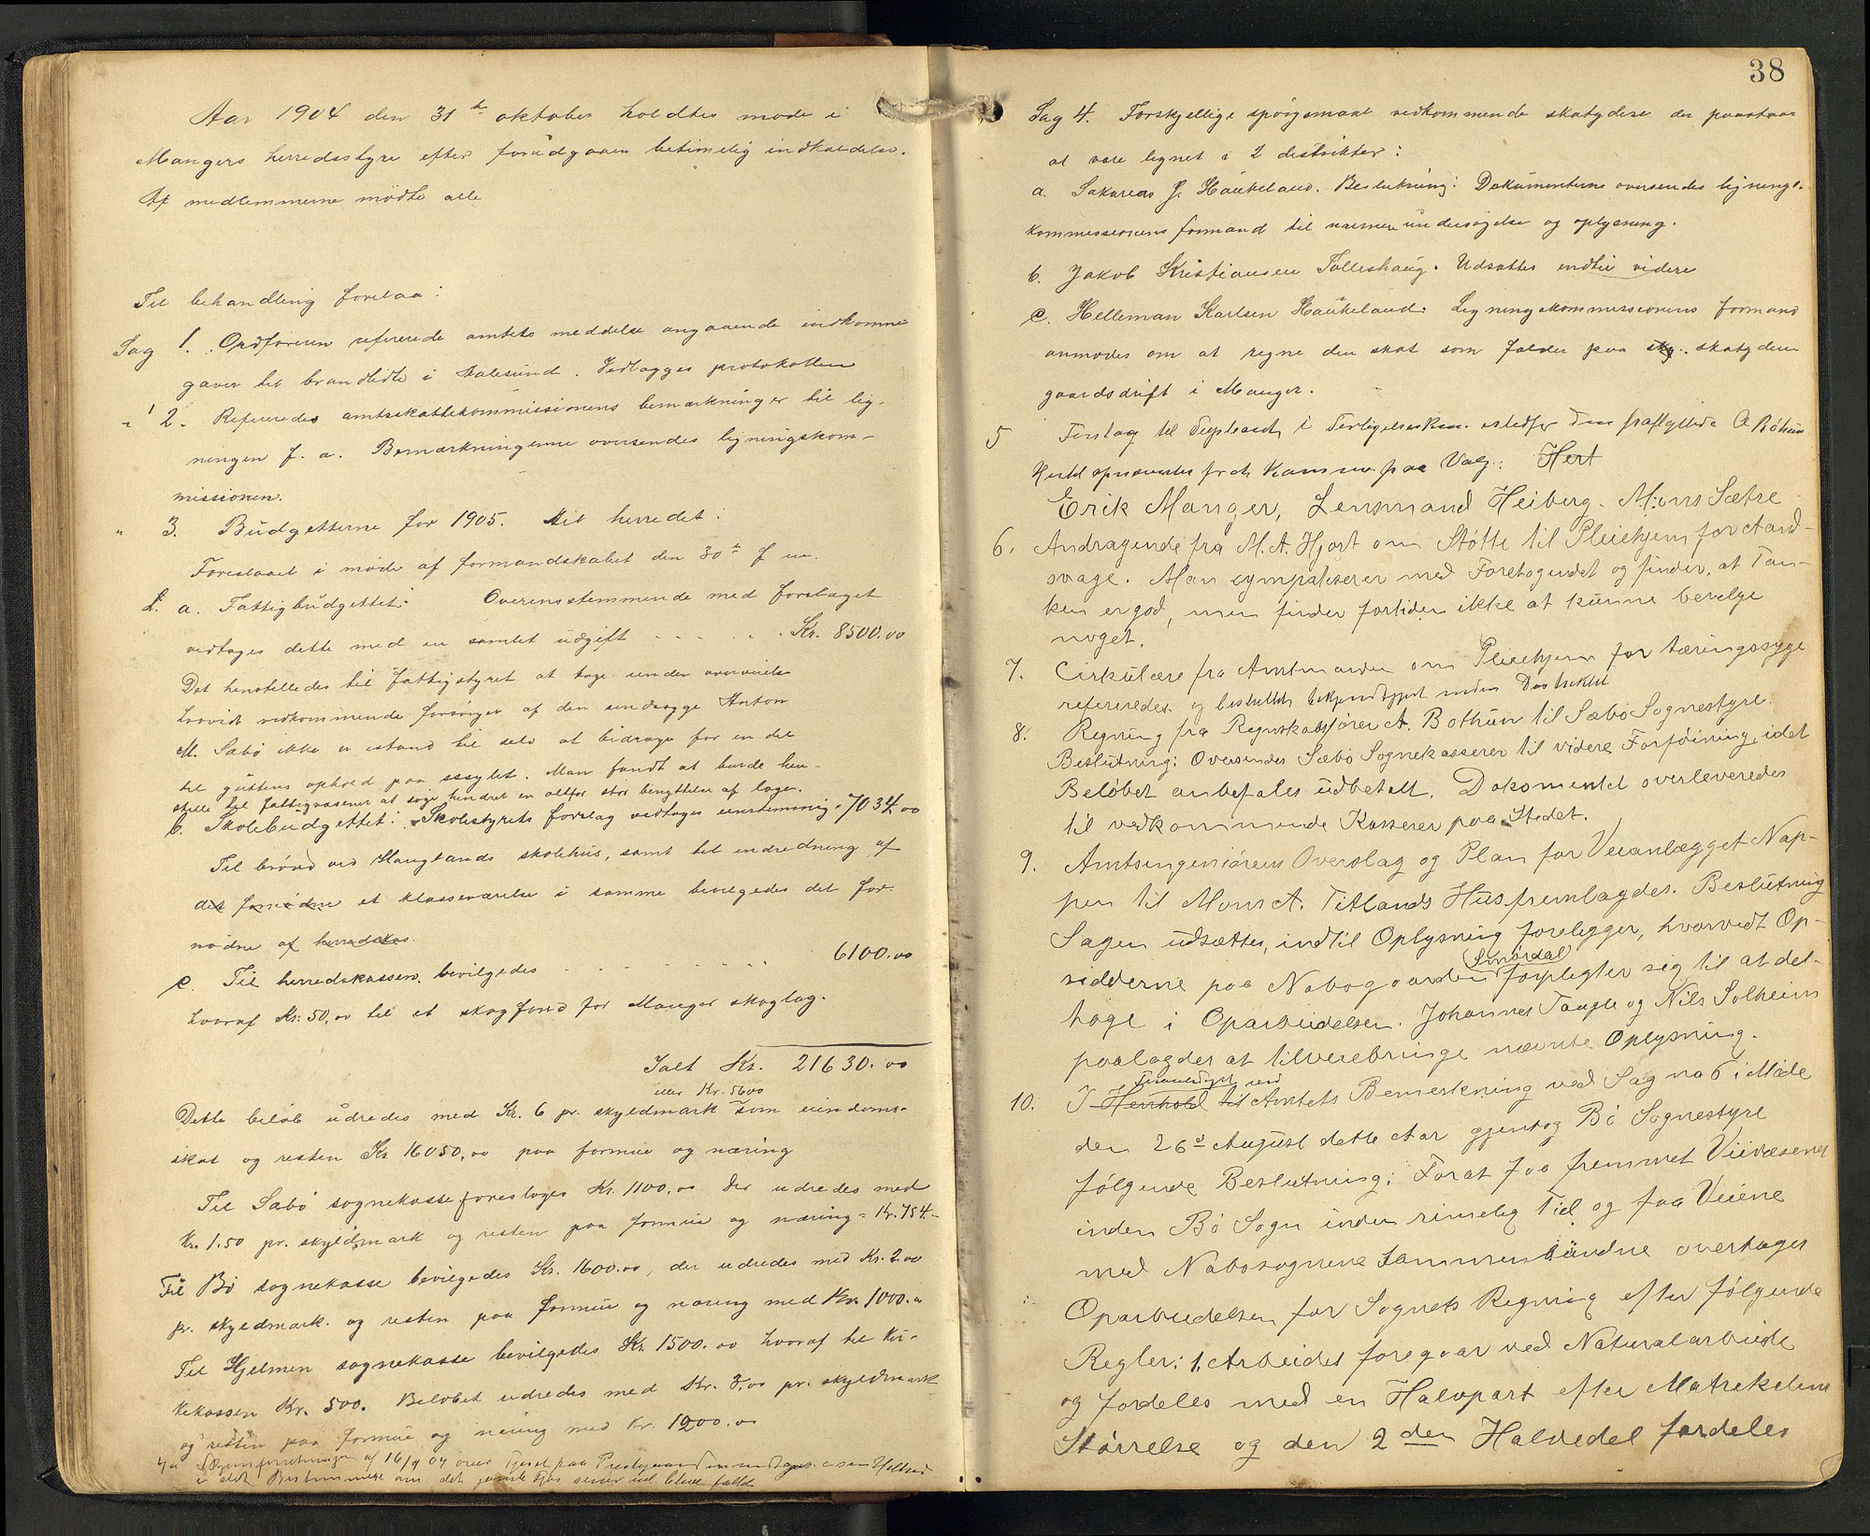 Aar 1904 den 31te oktober holdtes møde i
Mangers herredsstyre efter forudgaaen betimelig indkaldelse.
Af medlemmerne mødte alle
Til behandling forelaa:
Sag 1. Ordføreren refererede amtets meddelse angaaende indkomne
gaver til brandlidte i Aalesund. Vedlægges protokollen
" 2. Refereredes amtsskattekommissionens bemærkninger til lig-
ningen f. a. Bemærkningerne oversendes ligningskom-
missionen.
" 3. Budgetterne for 1905. Til herredet:
Foreslaaet i møde af formandskabet den 30te f m.
a. Fattigbudgettet: Overensstemmende med forslaget
vedtages dette med en samlet udgift - - - - - Kr. 8500.00
Det henstilledes til fattigstyret at tage under overveielse
hvorvidt vedkommende forsørger af den sindssyge Anton
M. Sæbø ikke er istand til selv at bidrage for en del
til guttens ophold paa asylet. Man fandt at burde hen-
stille til fattigvæsenet at søge hindret en altfor stor benyttelse af læge.
b. Skolebudgettet: Skolestyrets forslag vedtages enstemmig = 7034.00
Til brønd ved Hauglands skolehus, samt til indredning af
et klasseværelse i samme bevilgedes det for-
nødne af herredsks.
c. Til herredskassen bevilgedes - - - - - 6100.00
hvoraf Kr. 50,00 til et skogfond for Manger skoglag.
Ialt Kr. 21630.00
eller Kr. 5600
Dette beløb udredes med Kr. 6 pr. skyldmark som eiendoms-
skat og resten Kr 16050,00 paa formue og næring
Til Sæbø sognekasse foreslages Kr. 1100,00 der udredes med
Kr. 1.50 pr. skyldmark og resten paa formue og næring = Kr. 754.-
Til Bø sognekasse bevilgedes Kr. 1600.00, der udredes med Kr. 2.00
pr. skyldmark. og resten paa formue og næring med Kr. 1000.00
Til Hjelmen sognekasse bevilgedes Kr. 1500.00 hvoraf til kir-
kekassen Kr. 500. Beløbet udredes med Kr. 3,00 pr. skyldmark
og resten paa formue og næring med Kr. 1200.00
af 16/9 04 over
38
Sag 4. Forskjellige spørgsmaal vedkommende skatydere der paastaar
at være lignet i 2 distrikter:
a. Sakarias J. Haukeland. Beslutning: Dokumenterne oversendes lignings-
kommissionens formand til nærmere undersøgelse og oplysning.
b. Jakob Kristiansen Tolleshaug. Udsattes indtil videre
c. Helleman Karlsen Haukeland: Ligningskommissionens formand
anmodes om at regne den skat som falder paa sky. skatyderens
gaardsdrift i Manger.
5 Forslag til Suppleant i istedfor den fraflyttede A Bøthun
Hertil opnævntes frem paa Valg: Hert
Erik Manger, Lensmand Heiberg. Mons Sætre
6. Andragende fra M. A. Hjort om Støtte til Pleiehjem for Aand-
svage. Man sympatiserer med Foretagendet og finder, at Tan-
ken er god, men finder fortiden ikke at kunne bevilge
noget.
7. Cirkulære fra Amtmanden om Pleiehjem for tæringssyge
refereredes og besluttet bekjendtgjort inden Distriktet
8. Regning fra Regnskabsfører A. Bothun til Sæbø Sognestyre.
Beslutning: Oversendes Sæbø Sognekasserer til videre Forføining, idet
Beløbet anbefales udbetalt. Dokomentet overleveredes
til vedkommende Kasserer paa Stedet.
9. Amtsingeniørens Overslag og Plan for Veianlægget Nap-
pen til Mons A. Titlands Hus fremlagdes. Beslutning
Sagen udsættes, indtil Oplysning foreligger, hvorvidt Op-
sidderne paa Nabogaarden Smørdal forpligter sig til at del-
tage i Oparbeidelsen. Johannes Taugle og Nils Solheim
paalagdes at tilveiebringe nævnte Oplysning.
10. I Henhold til Amtets Bemerkning ved Sag no 6 i Møde
den 26de August dette Aar gjentog Bø Sognestyre
følgende Beslutning: Forat faa fremmet Veivæsenet
inden Bø Sogn inden rimelig Tid og faa Veiene
med Nabosognene sammenbundne overtages
Oparbeidelsen for Sognets Regning efter følgende
Regler: 1. Arbeidet foregaar ved Naturalarbeide
og fordeles med en Halvpart efter Matrikelens
Størrelse og den 2den Halvdel fordeles